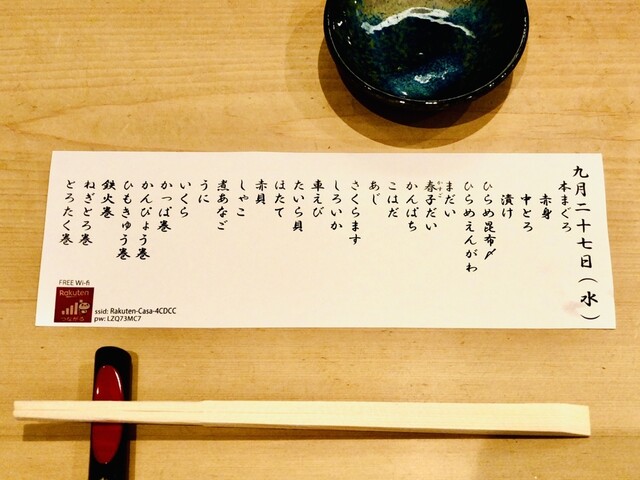 九月二十七日(水)
本まぐろ
赤身
中とろ
漬け
ひらめ昆布〆
ひらめえんがわ
まだい
春子だい
かすご
かんぱち
こはだ
あじ
さくらます
しろいか
車えび
たいら貝
ほたて
赤貝
しゃこ
煮あなご
うに
いくら
かっぱ巻
かんぴょう巻
ひもきゅう巻
鉄火巻
ねぎとろ巻
とろたく巻
FREE Wi-fi
Rakuten
つながる
ssid: Rakuten-Casa-4CDCC
pw: LZQ73MC7